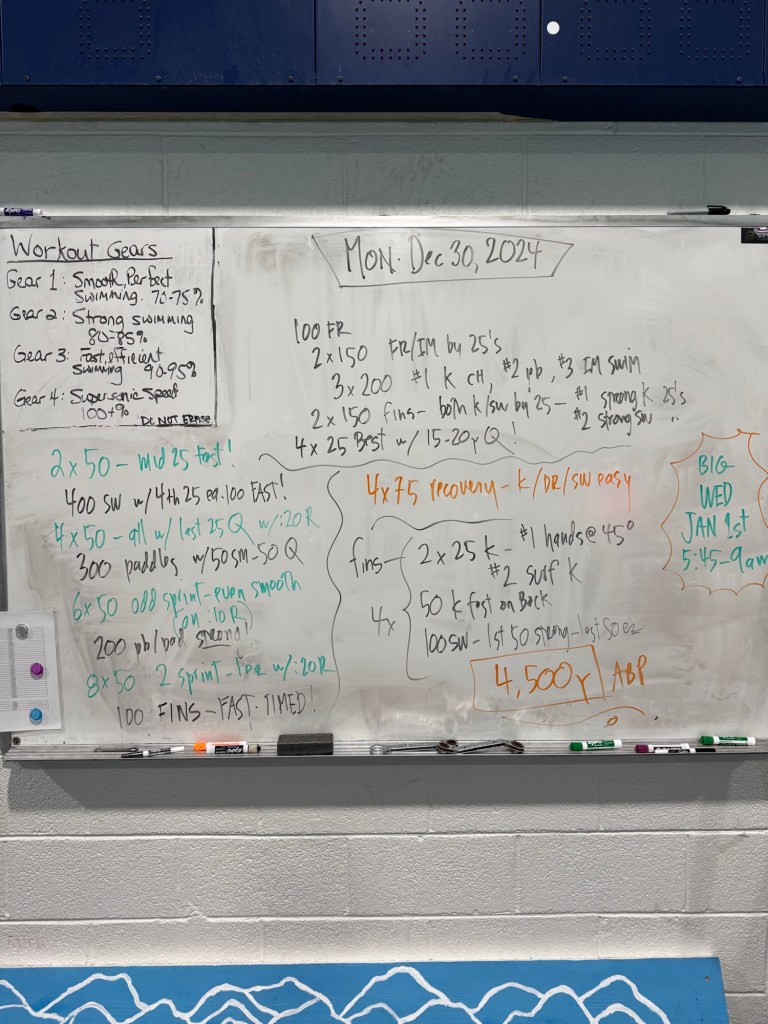 Workout Gears
Gear 1: Smooth, Perfect
Swimming. 70-75%
Gear 2: Strong swimming
80-85%
Gear 3: Fast, efficient
Swimming 90-95%
Gear 4: Supersonic Speed
100+%
DO NOT ERASE
MON. Dec 30, 2024
100 FR
2x150 FR/IM by 25's
3x200 #1 K CH, #2 pb, #3 IM swim
2x150 fins- both k/sw by 25- #1 strong K 25's
#2 strong sw "
4x25 Best w/ 15-20y Q!
2x50 - mid 25 fast!
400 SW w/ 4th 25 ea. 100 FAST!
4x50 - all w/ last 25 Q w/:20R
300 paddles w/50 sm-50 Q
6x50 odd sprint-even smooth
(on :10R)
200 pb/pad strong!
8x50 2 sprint- w/:20R
100 FINS - FAST. TIMED!
4x75 recovery - K/DR/SW easy
fins-
4x
2x25 k - #1 hands@45°
#2 surf K
50 k fast on Back
100SW - 1st 50 strong-last 50 ez
4,500y ABP
BIG
WED
JAN 1st
5:45-9am